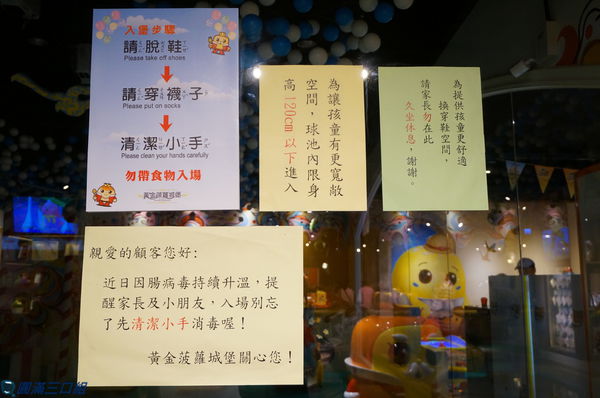 入堡步驟
請脫鞋
Please take off shoes
請穿襪子
Please put on socks
清潔小手
Please clean your hands carefully
勿帶食物入場
黃金菠蘿城堡
為讓孩童有更寬敞
空間，球池內限身
高120cm以下進入
為提供孩童更舒適
換穿鞋空間，
請家長勿在此
久坐休息，謝謝。
親愛的顧客您好:
近日因腸病毒持續升溫，提
醒家長及小朋友，入場別忘
了先清潔小手消毒喔！
黃金菠蘿城堡關心您！
圓滿三口組